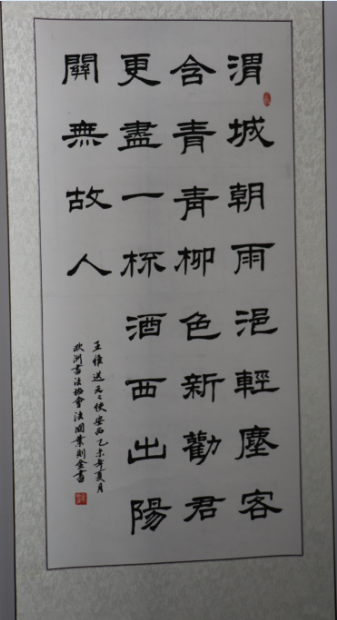 渭城朝雨浥輕塵客
含青青柳色新勸君
更盡一杯酒西出陽
關無故人
王維送元二使安西乙未年夏月
欧洲書法協會法國葉則金書